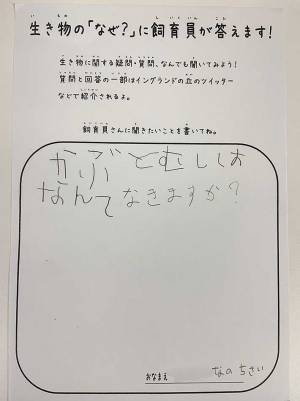 生き物の「なぜ？」に飼育員が答えます！
生き物に関する疑問・質問、なんでも聞いてみよう！
質問と回答の一部はイングランドの丘のツイッター
などで紹介されるよ。
飼育員さんに聞きたいことを書いてね。
かぶとむしは
なんてなきますか？
おなまえ
なの ちさい